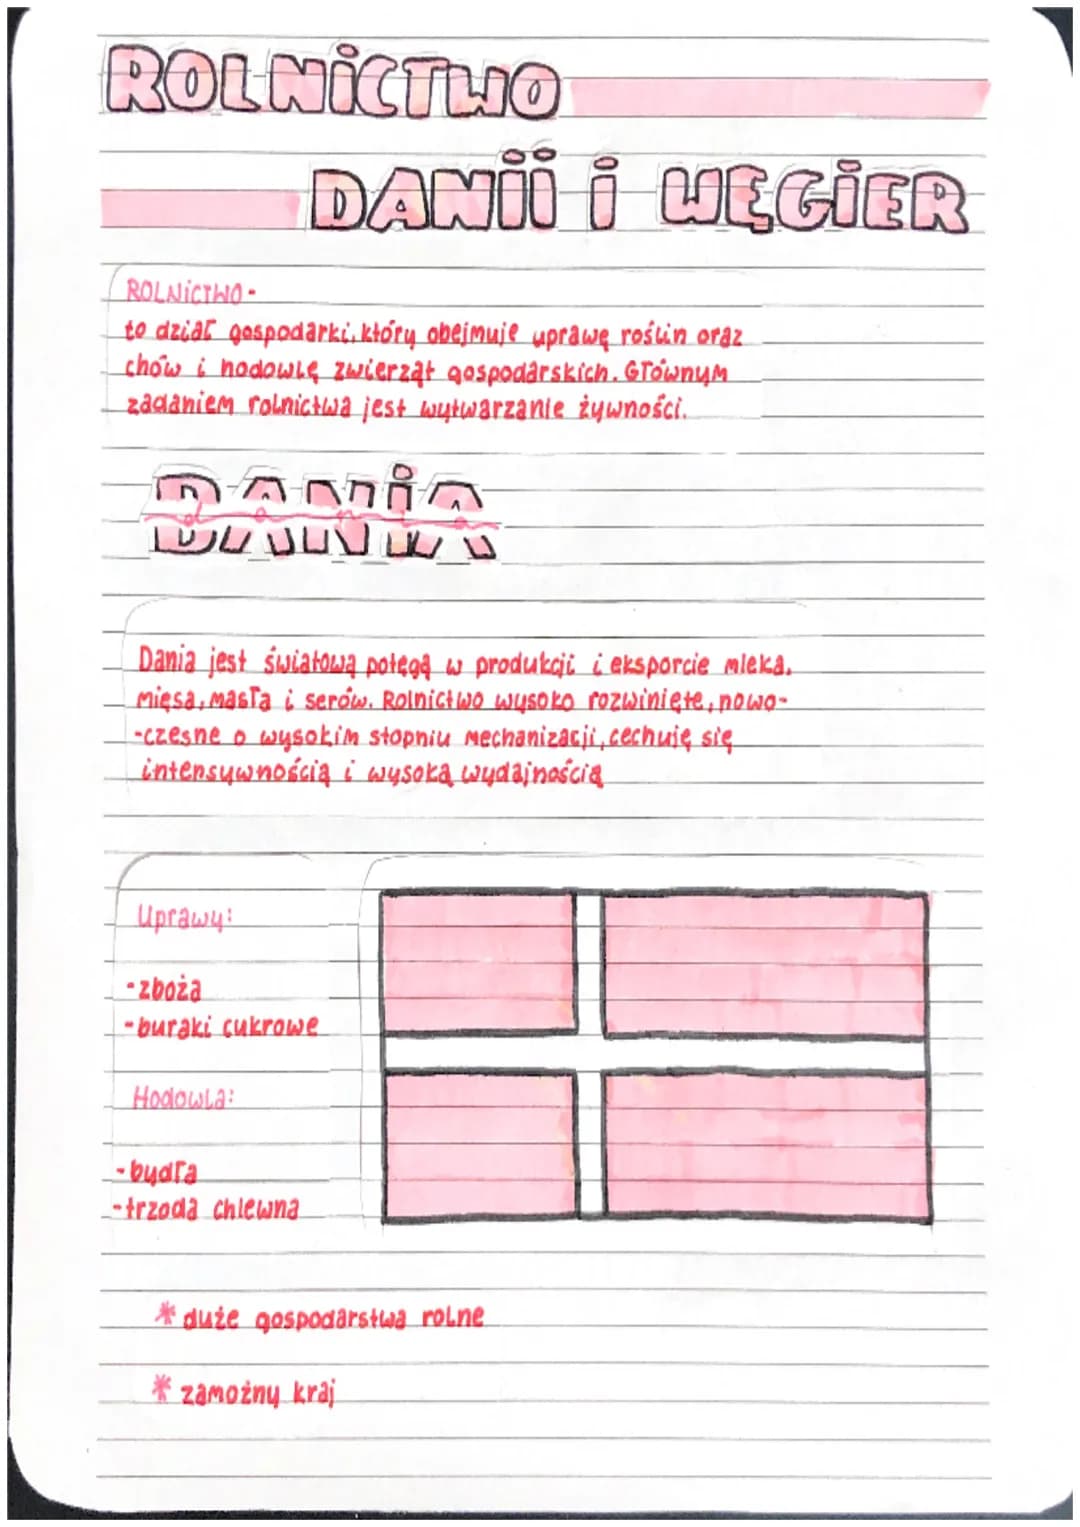 ROLNiCTWO
DANii i WĘGiER
ROLNiCTWO-
to dział gospodarki, który obejmuje uprawę roślin oraz
chów i hodowlę zwierząt gospodarskich. Głównym
zadaniem rolnictwa jest wytwarzanie żywności.
DANiA
Dania jest światową potęgą w produkcji i eksporcie mleka,
mięsa, masła i serów. Rolnictwo wysoko rozwinięte, nowo-
-czesne o wysokim stopniu mechanizacji, cechuję się
intensywnością i wysoką wydajnością
Uprawy:
-zboża
-buraki cukrowe
Hodowla:
-bydła
-trzoda chlewna
* duże gospodarstwa rolne
* zamożny kraj